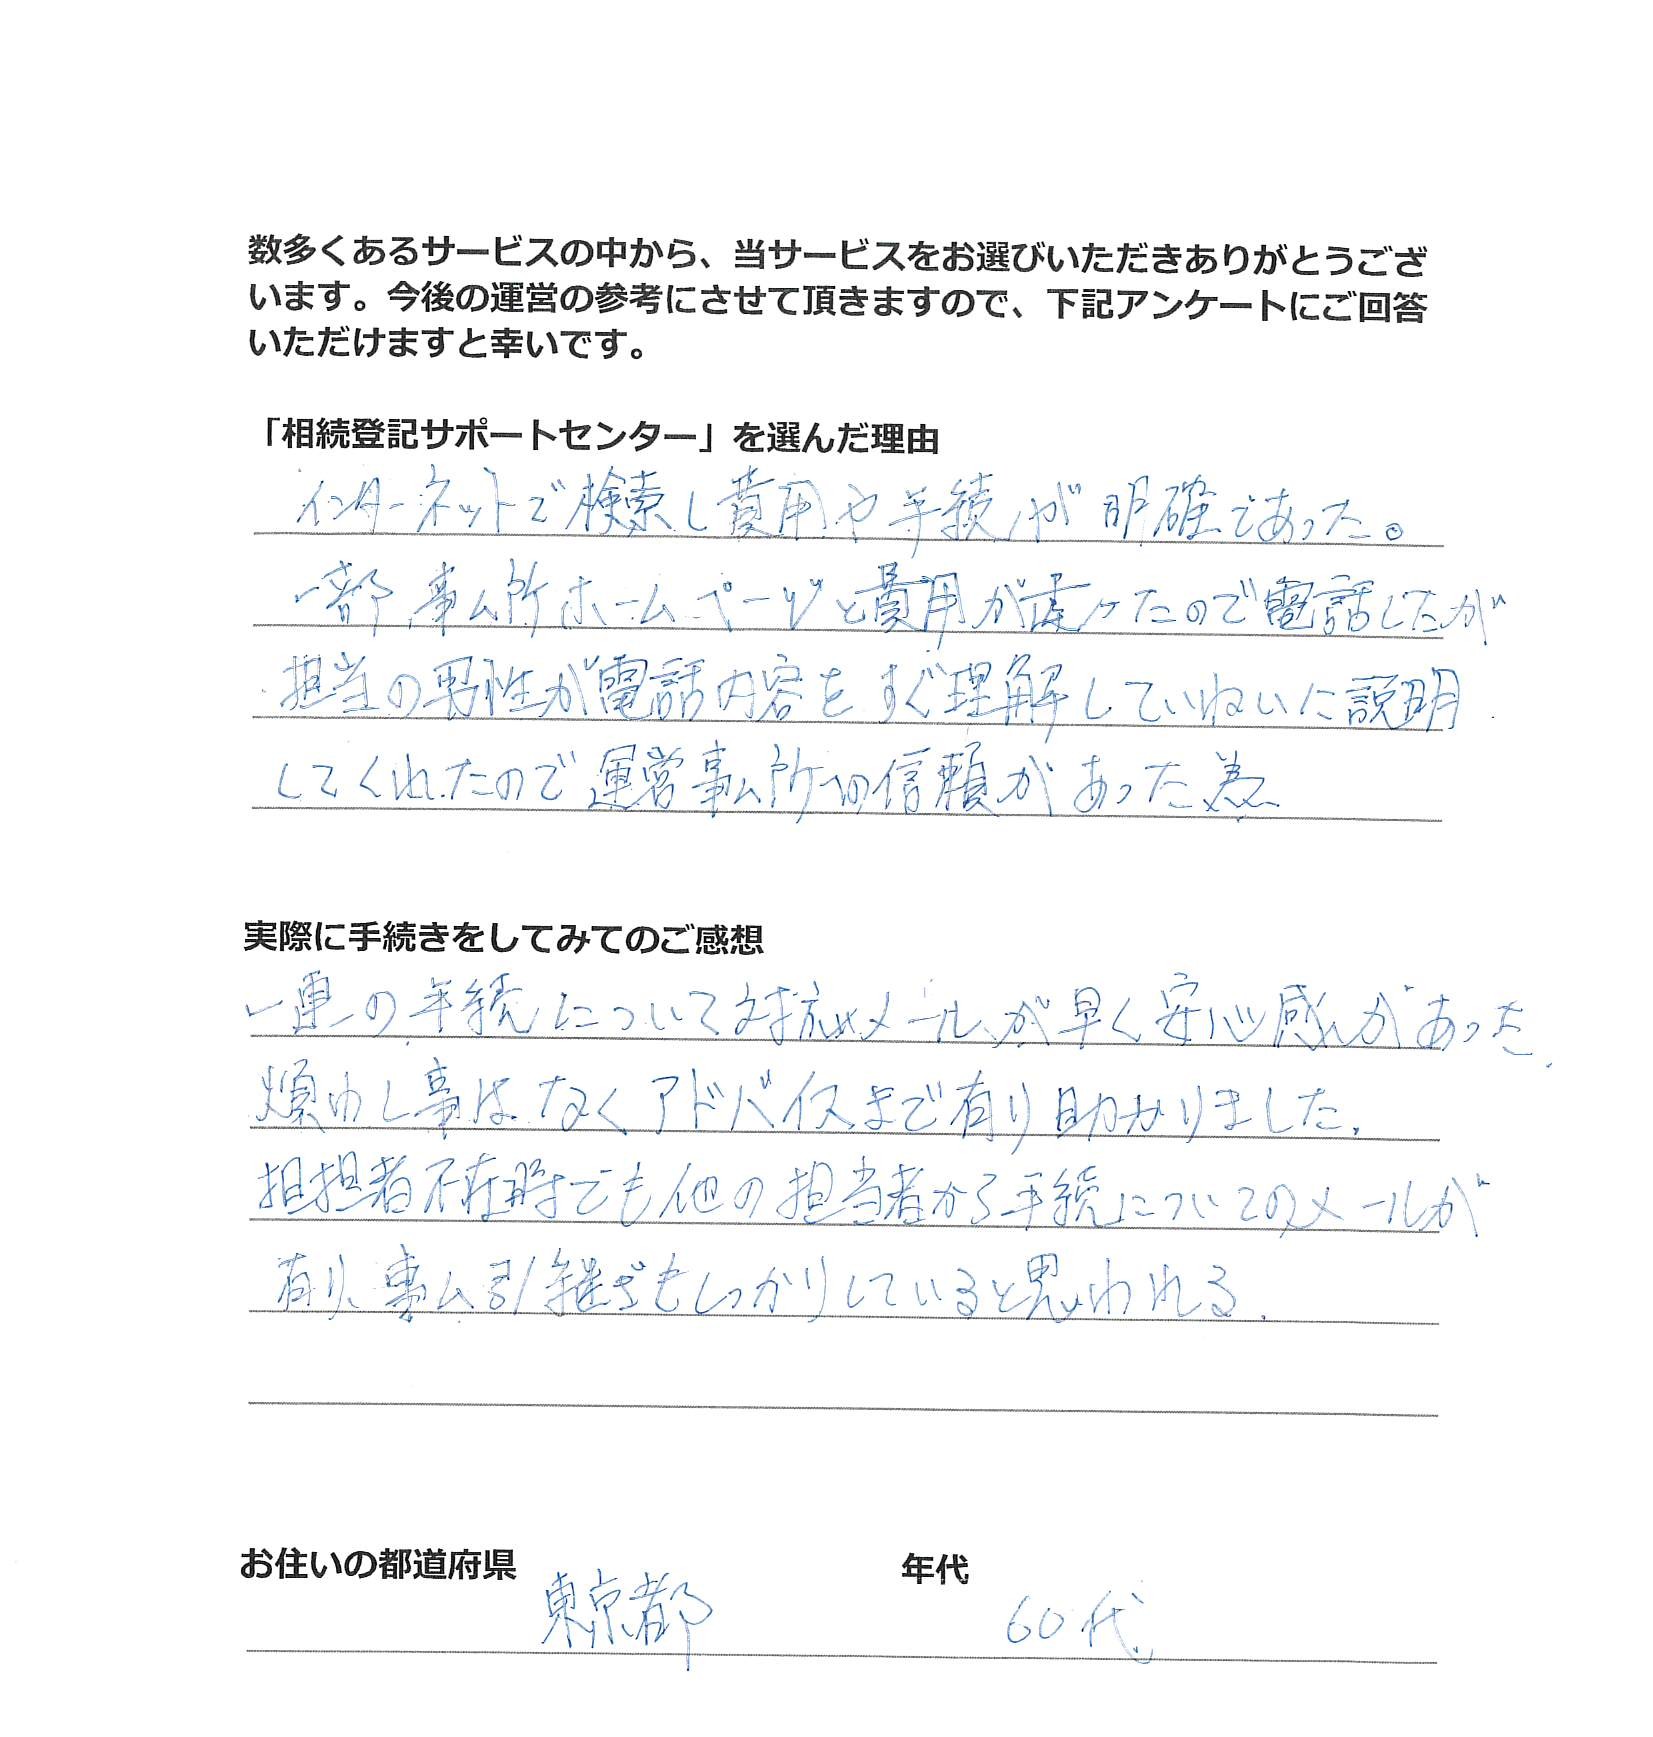 数多くあるサービスの中から、当サービスをお選びいただきありがとうござ
います。今後の運営の参考にさせて頂きますので、下記アンケートにご回答
いただけますと幸いです。
「相続登記サポートセンター」を選んだ理由
インターネットで検索し費用や手続が明確であった。
一部、事ム所ホームページと費用が違ったので電話したが
担当の男性が電話内容をすぐ理解していねいに説明
してくれたので運営事ム所の信頼があった為
実際に手続きをしてみてのご感想
一連の手続について対応メールが早く安心感があった.
煩わし事はなくアドバイスまで有り助かりました.
担担者不在時でも他の担当者から手続についてのメールが
有り、事ム引継ぎもしっかりしていると思われる.
お住いの都道府県 年代
東京都 60代